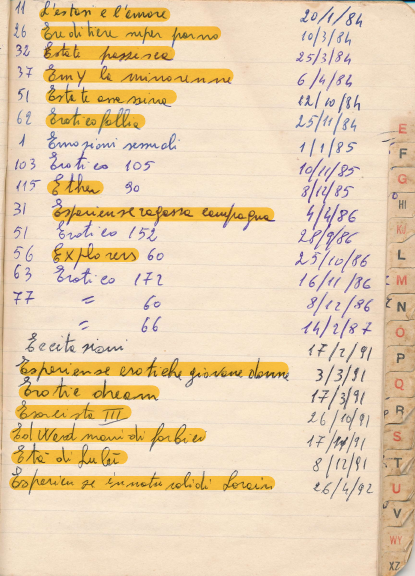 11 L'estasi e l'amore 20/1/84
26 Ereditiere super porno 10/3/84
32 Estate pazzesca 25/3/84
37 Emy la minorenne 6/4/84
51 Estate assassina 12/10/84
62 Erotico follia 25/11/84
1 Emozioni sessuali 1/1/85
103 Erotico 105 10/11/85
115 Ether 90 8/12/85
31 Esperienze ragazza campagna 4/4/86
51 Erotico 152 28/9/86
56 Explorers 60 25/10/86
63 Erotico 172 16/11/86
77 = 60 8/12/86
= 66 14/2/87
Eccitazioni 17/2/91
Esperienze erotiche giovane donna 3/3/91
Erotic dream 17/3/91
Esorcista III 26/10/91
Ed Ward mani di forbici 17/11/91
Età di Lulù 8/12/91
Esperienze di 26/4/92
E
F
G
HI
KJ
L
M
N
O
P
Q
R
S
T
U
V
WY
XZ